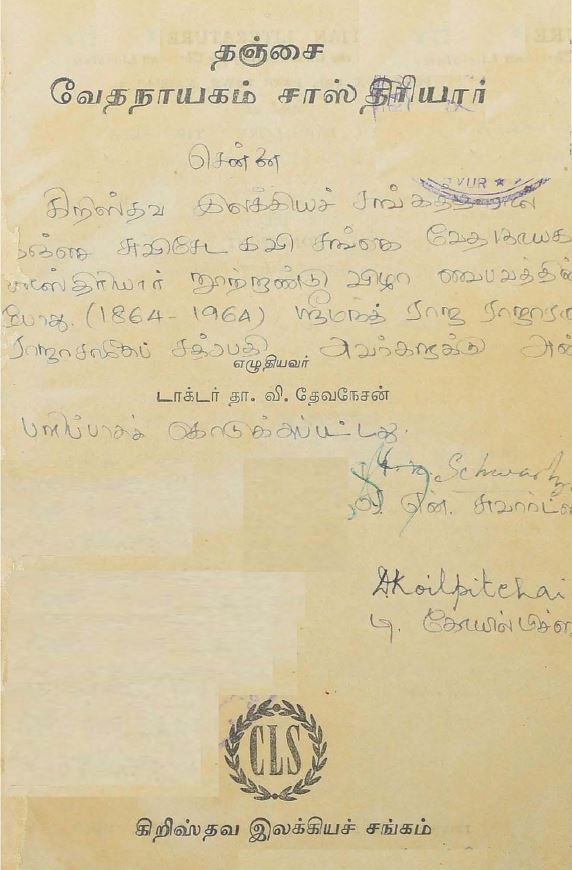 தஞ்சை
வேதநாயகம் சாஸ்திரியார்
சென்னை
VUR ★
கிறிஸ்தவ இலக்கியச் சங்கத்தாரால்
தஞ்சை சுவிசேட கவி சங்கை வேதநாயக
சாஸ்திரியார் நூற்றாண்டு விழா வைபவத்தின்
போது (1864-1964) ஸ்ரீமந்த் ராஜ ராஜாராம்
ராஜா சத்பதி அவர்களுக்கு அன்
எழுதியவர்
டாக்டர் தா. வி. தேவநேசன்
பளிப்பாகக் கொடுக்கப்பட்டது.
Schwartz
என். சுவார்ட்ஸ்
DKoilpitchai
டி. கோயில்பிச்சை
CLS
கிறிஸ்தவ இலக்கியச் சங்கம்